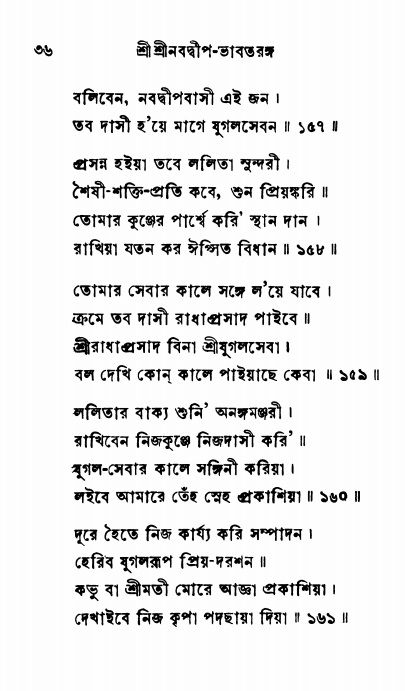 ৩৬ শ্রীশ্রীনবদ্বীপ-ভাবতরঙ্গ
বলিবেন, নবদ্বীপবাসী এই জন ।
তব দাসী হ'য়ে মাগে যুগলসেবন ॥ ১৫৭ ॥
প্রসন্ন হইয়া তবে ললিতা সুন্দরী ।
শৈষী-শক্তি-প্রতি কবে, শুন প্রিয়ঙ্করি ॥
তোমার কুঞ্জের পার্শ্বে করি' স্থান দান ।
রাখিয়া যতন কর ঈপ্সিত বিধান ॥ ১৫৮ ॥
তোমার সেবার কালে সঙ্গে ল'য়ে যাবে ।
ক্রমে তব দাসী রাধাপ্রসাদ পাইবে ॥
শ্রীরাধাপ্রসাদ বিনা শ্রীযুগলসেবা ।
বল দেখি কোন্ কালে পাইয়াছে কেবা ॥ ১৫৯ ॥
ললিতার বাক্য শুনি' অনঙ্গমঞ্জরী ।
রাখিবেন নিজকুঞ্জে নিজদাসী করি' ॥
যুগল-সেবার কালে সঙ্গিনী করিয়া ।
লইবে আমারে তেঁহ স্নেহ প্রকাশিয়া ॥ ১৬০ ॥
দূরে হৈতে নিজ কার্য্য করি সম্পাদন ।
হেরিব যুগলরূপ প্রিয়-দরশন ॥
কভু বা শ্রীমতী মোরে আজ্ঞা প্রকাশিয়া ।
দেখাইবে নিজ কৃপা পদছায়া দিয়া ॥ ১৬১ ॥